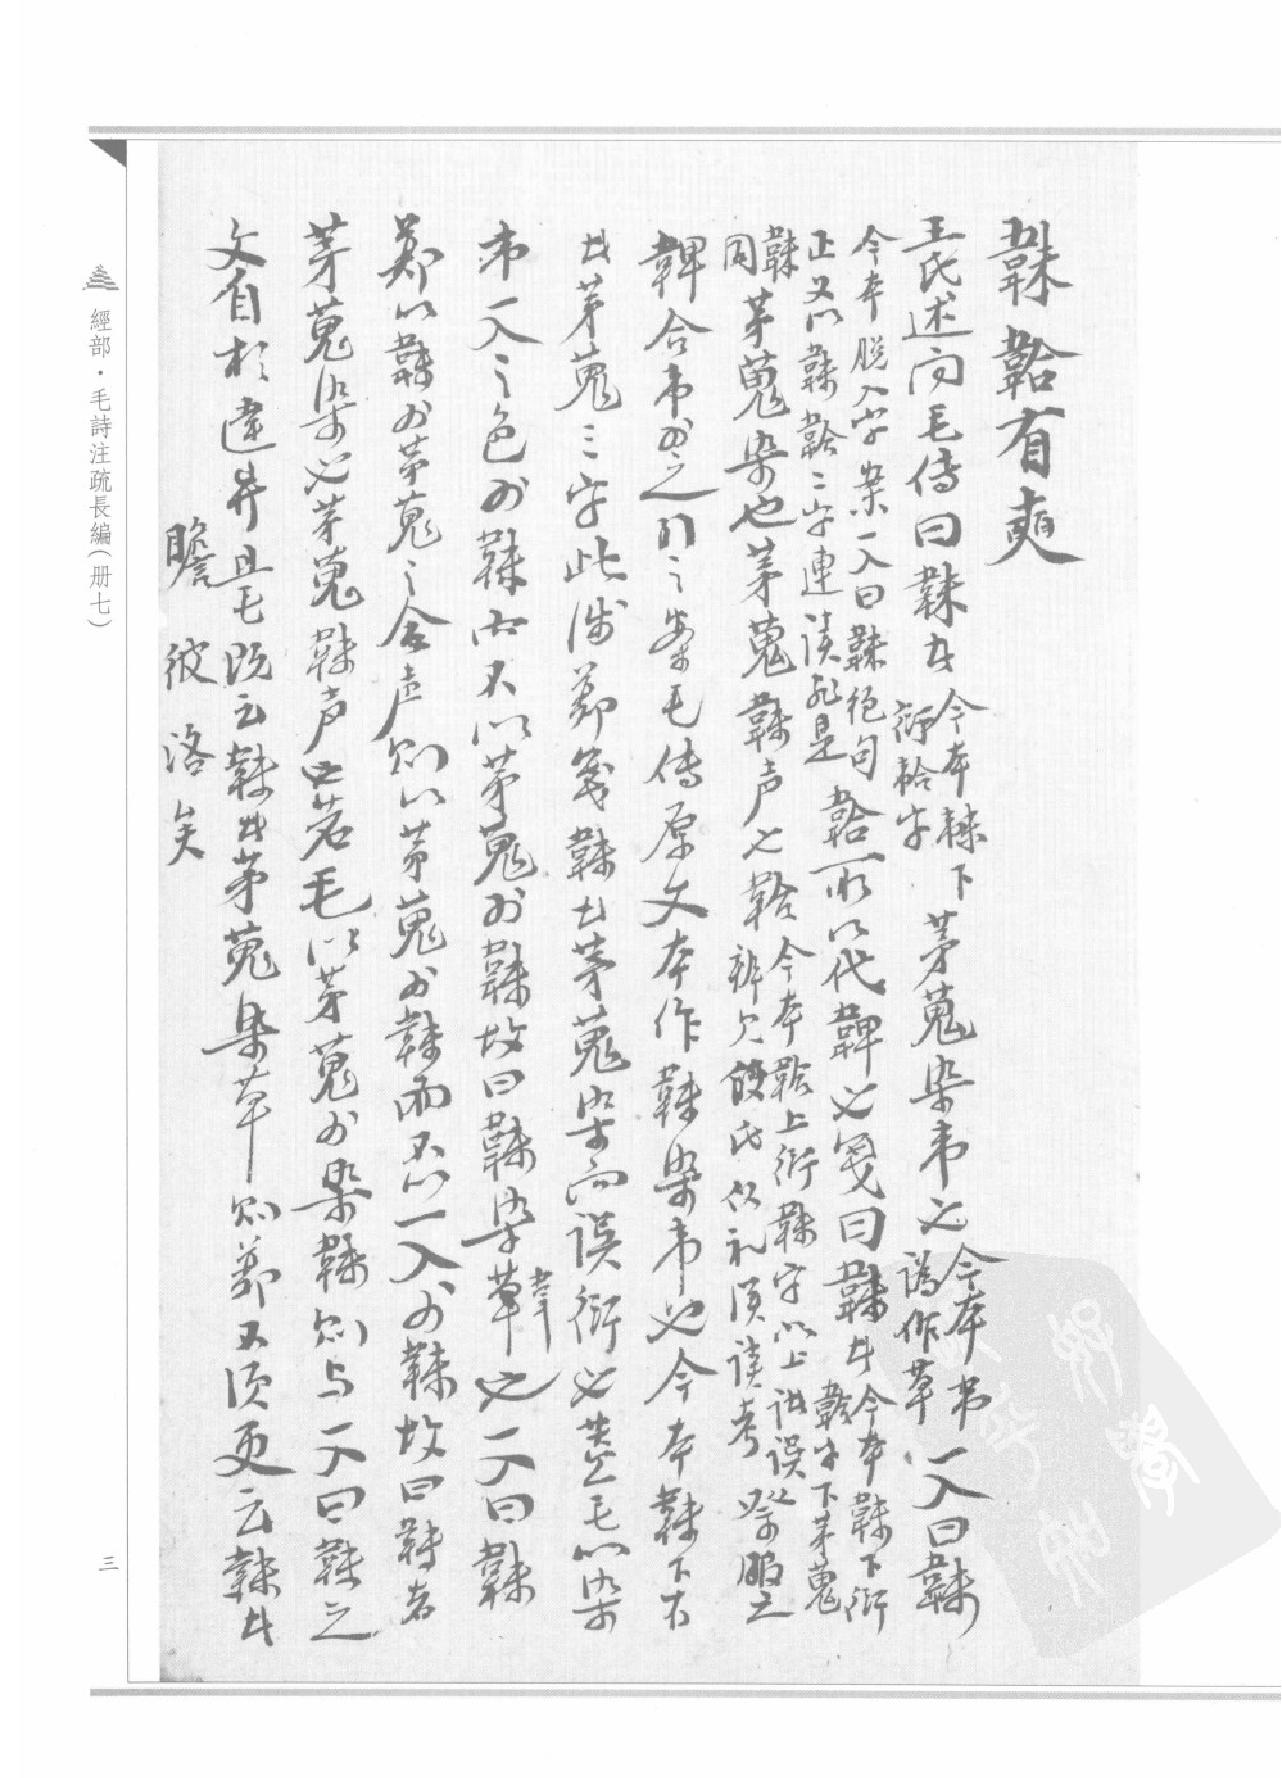 韎韐有奭
王氏述聞毛傳曰韎者今本韎下衍韐字茅蒐染韋也今本韋譌作草一入曰韎
今本脫入字案一入曰韎絕句韐所以代鞸也箋曰韎者今本韎下衍
正又以韎韐二字連讀非是韐字下茅蒐
韎茅蒐染也茅蒐韎声也韐今本韐上衍韎字以上訛誤祭服之
同
鞸合韋为之引之案毛傳原文本作韎染韋也今本韎下有
者茅蒐三字此涉鄭箋韎者茅蒐染而誤衍也葢毛以染
韋一入之色为韎而不以茅蒐为韎故曰韎染草韋也一入曰韎
鄭以韎为茅蒐之合声则以茅蒐为韎而不以一入为韎故曰韎者
茅蒐染也茅蒐韎声也若毛以茅蒐为染韎则与一入曰韎之
文自相違異且毛既云韎者茅蒐染草则鄭不須更云韎者
瞻彼洛矣
經部·毛詩注疏長編（册七）
三